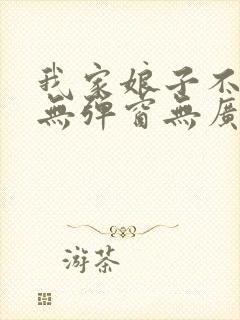 我家娘子不
無彈窗無廣
游茶